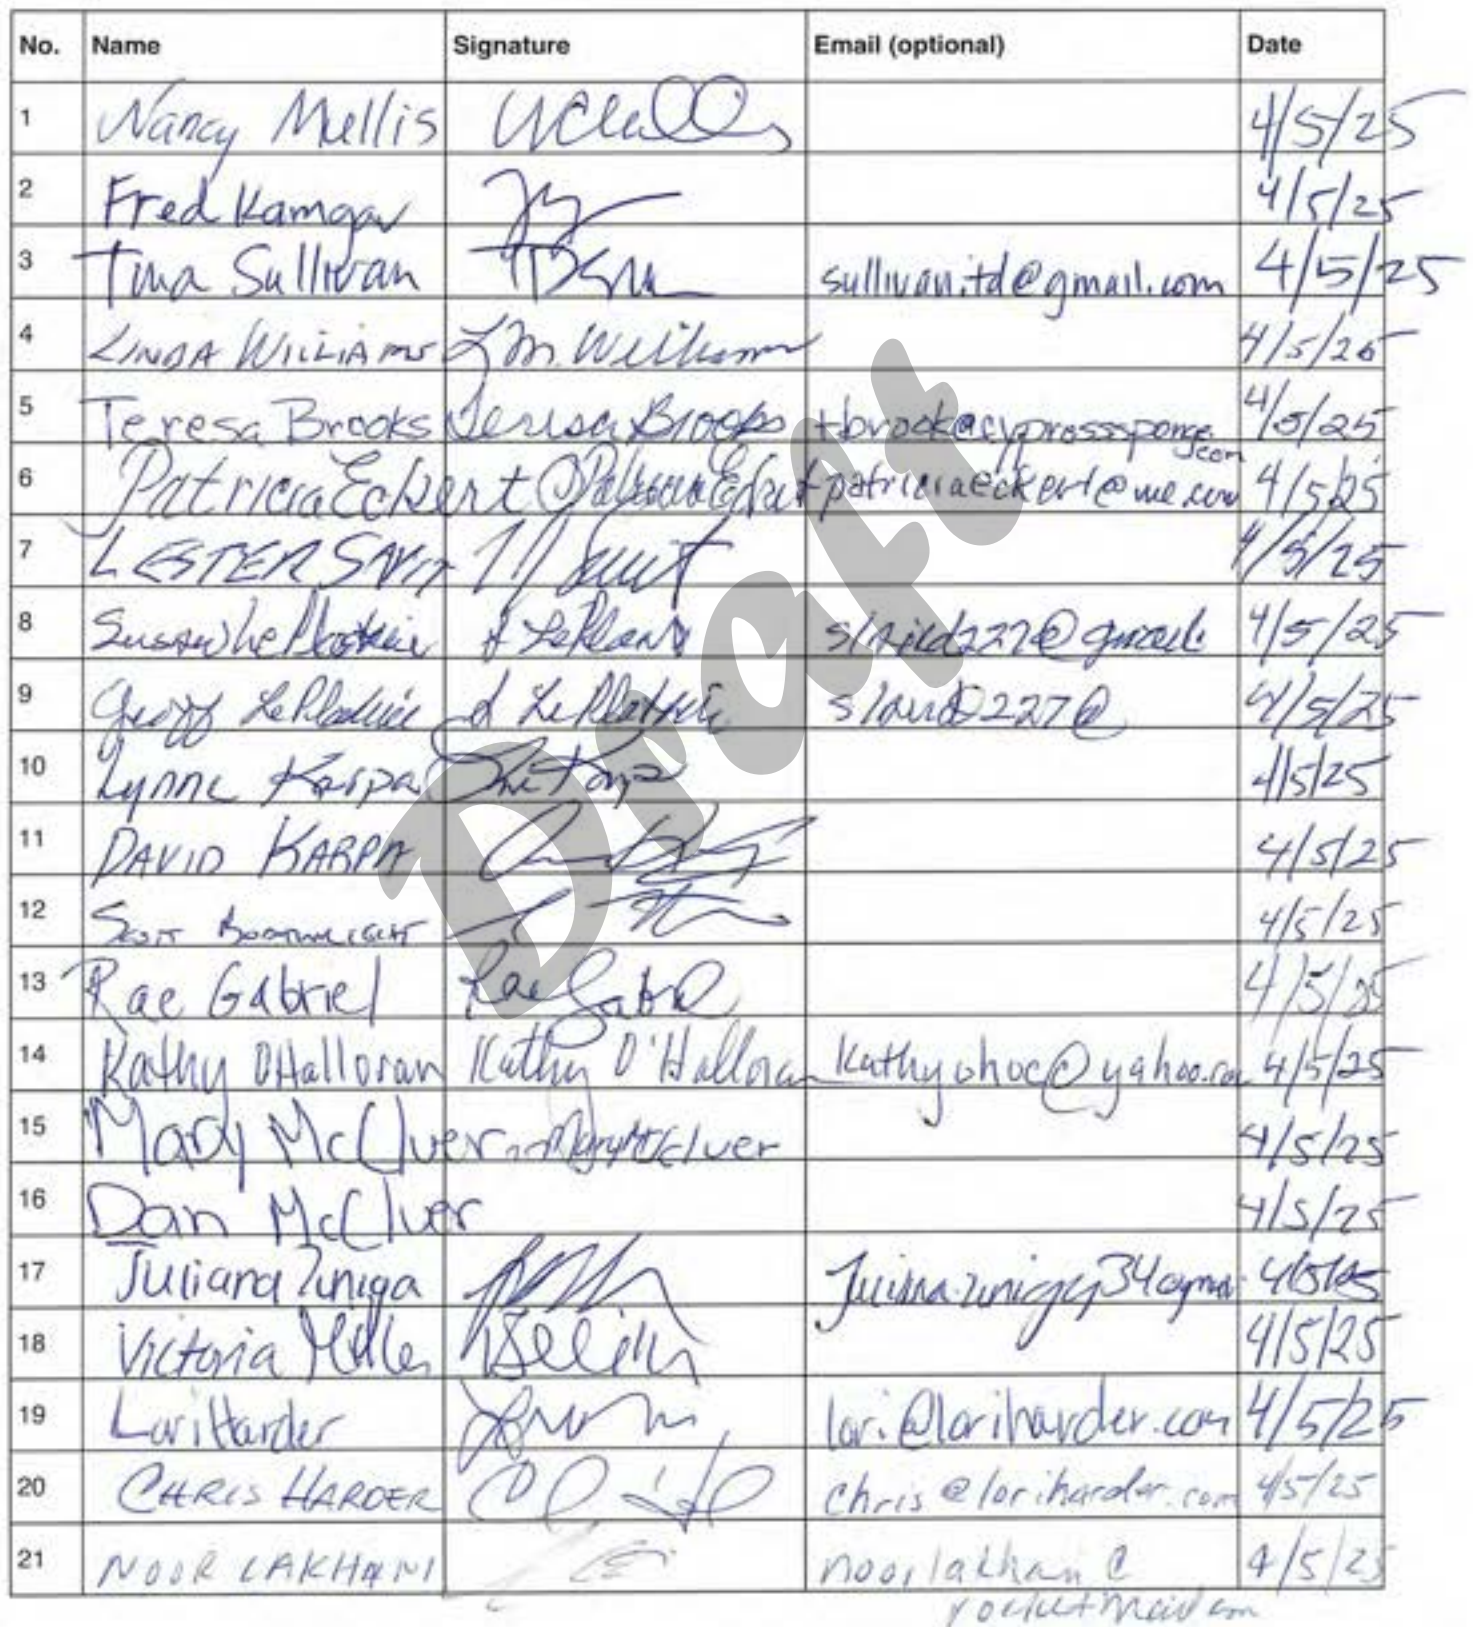 No. Name Signature Email (optional) Date
1 Nancy Mullis 4/5/25
2 Fred Kamgar 4/5/25
3 Tina Sullivan sullivan.td@gmail.com 4/5/25
4 LINDA WILLIAMS L M. Williams 4/5/25
5 Teresa Brooks Teresa Brooks tbrook@cypresssponge.com 4/5/25
6 Patricia Eckert Patricia Eckert patriciaeckert@me.com 4/5/25
7 LESTER SAVIT 4/5/25
8 Susan 4/5/25
9 Geoff 4/5/25
10 Lynne Karpa 4/5/25
11 DAVID KARPA 4/5/25
12 SCOTT BOATWRIGHT 4/5/25
13 Rae Gabriel Rae Gabriel 4/5/25
14 Kathy O'Halloran Kathy O'Halloran kathyohoc@yahoo.com 4/5/25
15 Mary McElver Mary McElver 4/5/25
16 Dan McElver 4/5/25
17 Juliana Zuniga 4/5/25
18 Victoria Miller 4/5/25
19 Lori Harder lori@loriharder.com 4/5/25
20 CHRIS HARDER chris@loriharder.com 4/5/25
21 NOOR LAKHANI noorlakhani@ 4/5/25
rocketmail.com
Draft